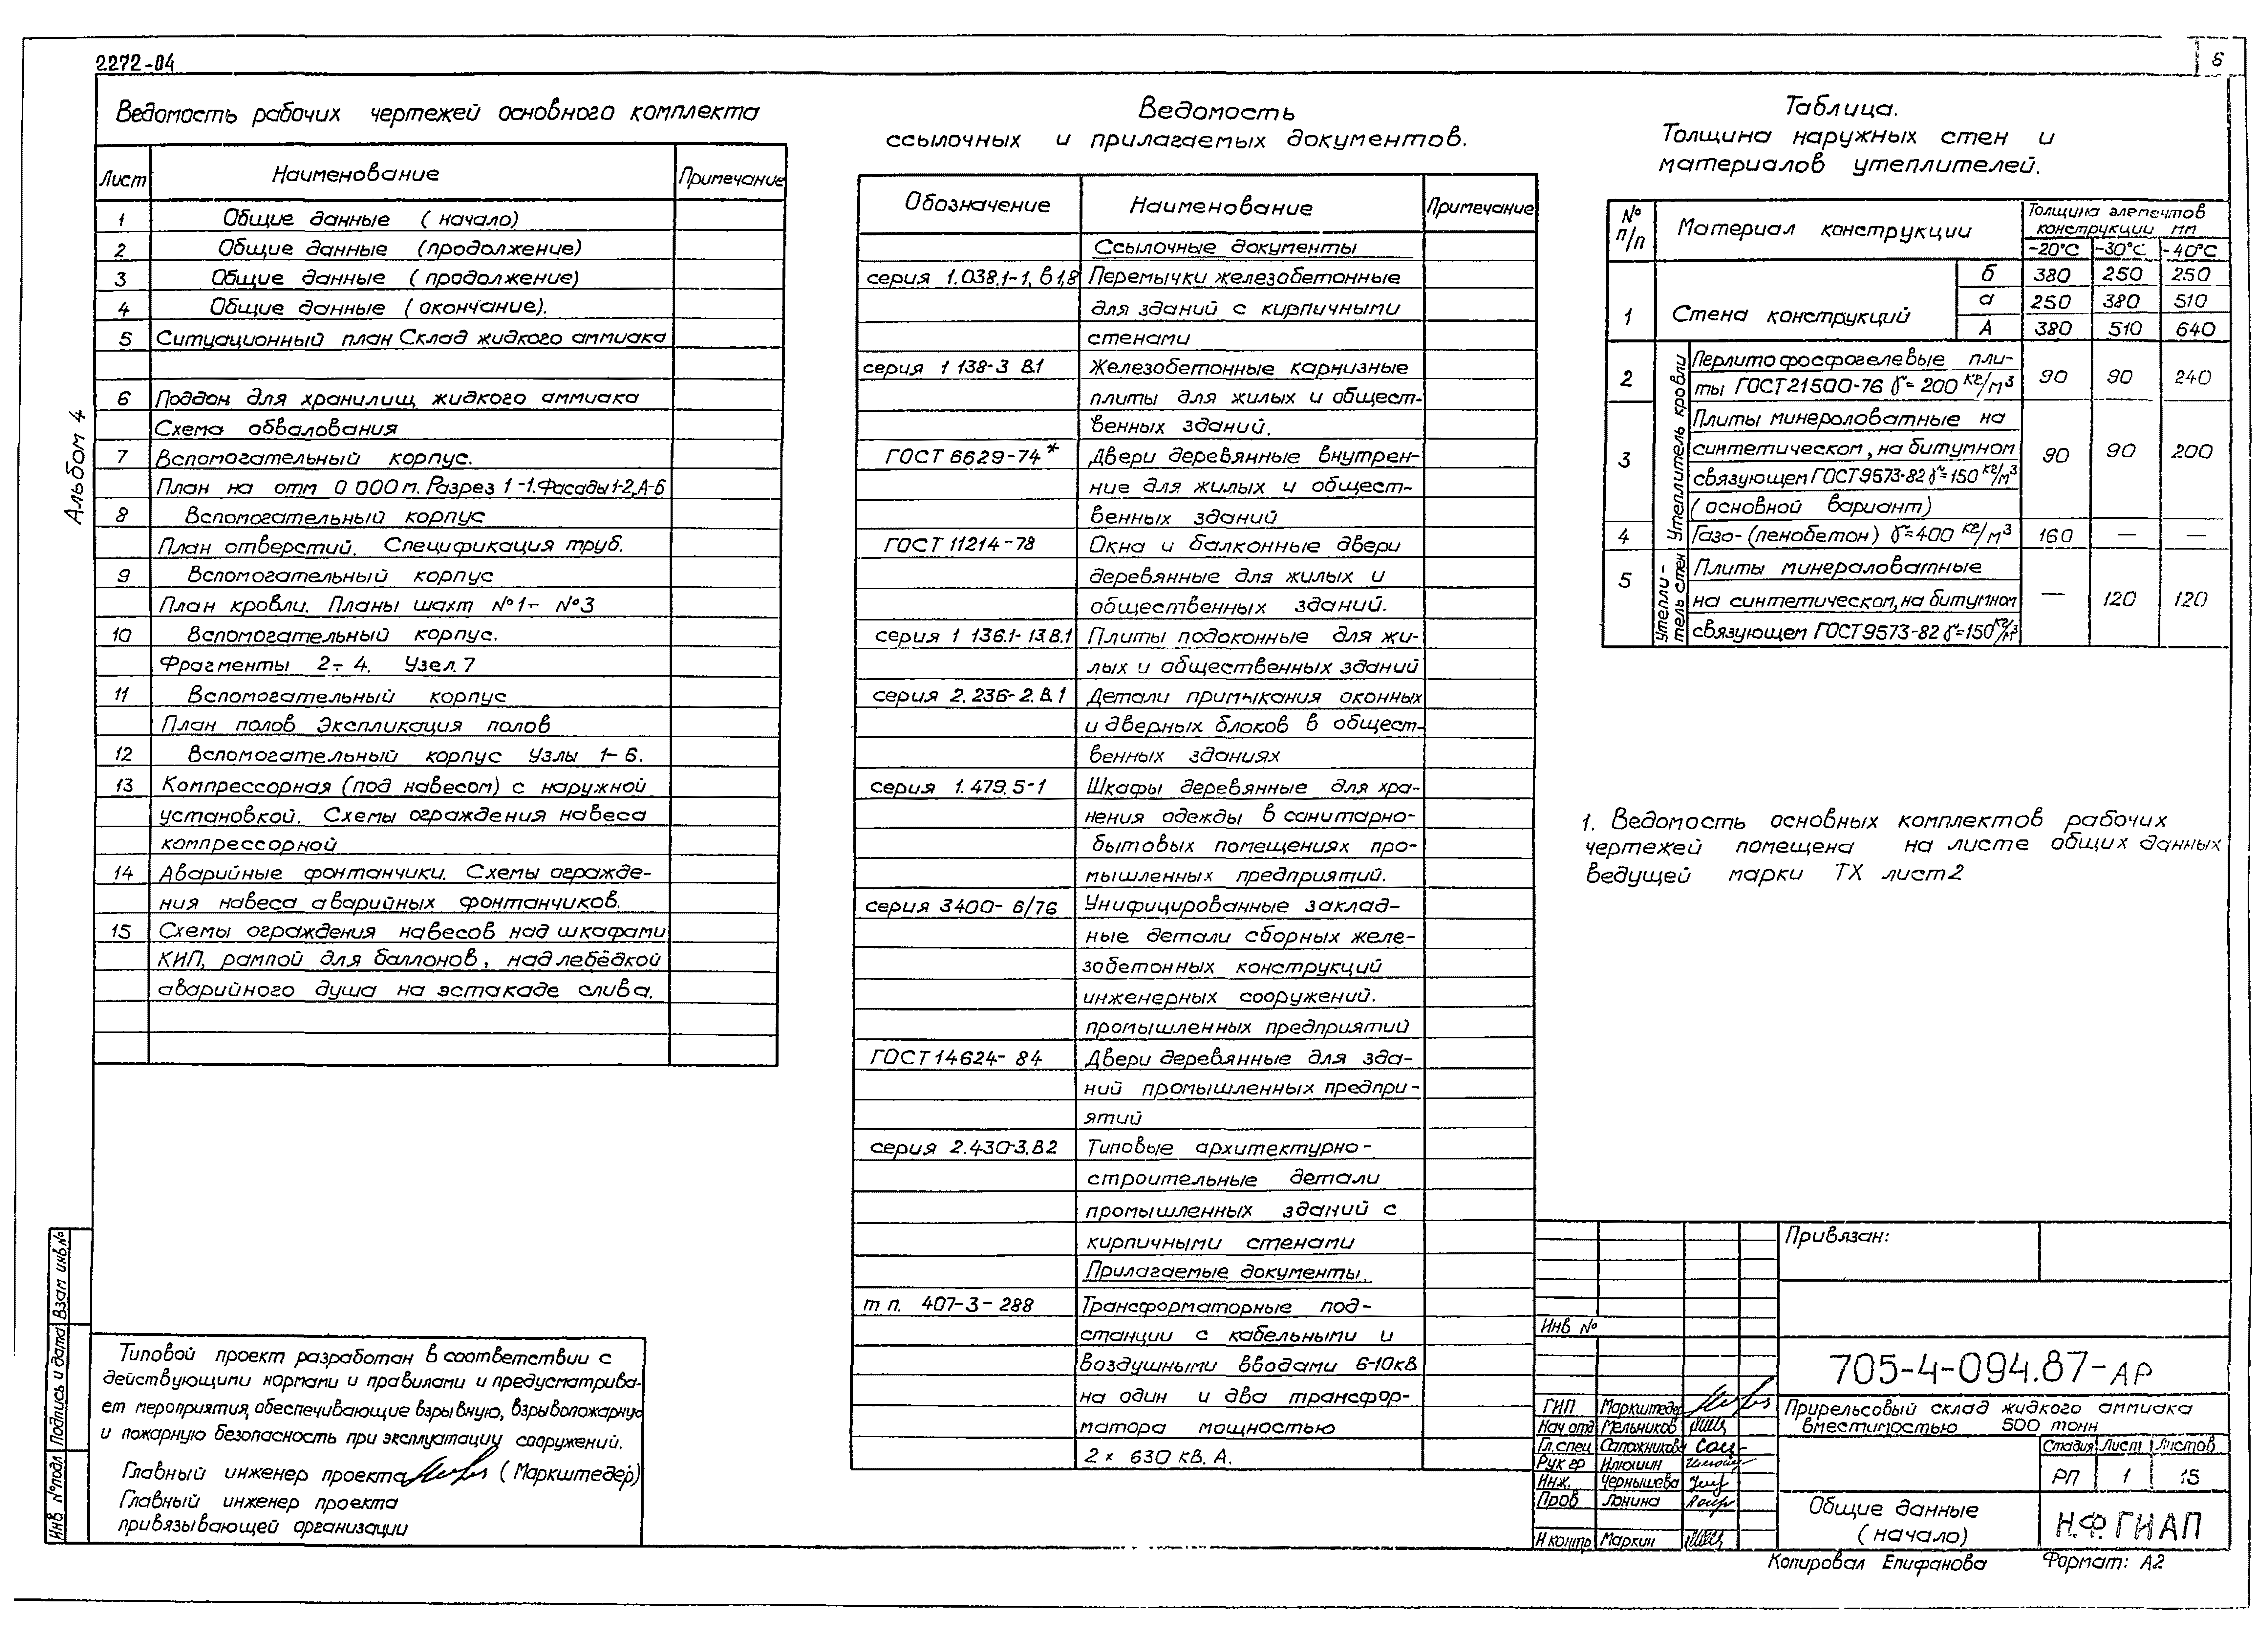 2272-04
6
Альбом 4
Ведомость рабочих чертежей основного комплекта
Лист Наименование Примечание
1 Общие данные (начало)
2 Общие данные (продолжение)
3 Общие данные (продолжение)
4 Общие данные (окончание).
5 Ситуационный план Склад жидкого аммиака
6 Поддон для хранилищ жидкого аммиака
Схема обвалования
7 Вспомогательный корпус.
План на отм 0 000 м. Разрез 1-1. Фасады 1-2, А-Б
8 Вспомогательный корпус
План отверстий. Спецификация труб.
9 Вспомогательный корпус
План кровли. Планы шахт №1÷ №3
10 Вспомогательный корпус.
Фрагменты 2÷4. Узел 7
11 Вспомогательный корпус
План полов Экспликация полов
12 Вспомогательный корпус Узлы 1-6.
13 Компрессорная (под навесом) с наружной
установкой. Схемы ограждения навеса
компрессорной
14 Аварийные фонтанчики. Схемы огражде-
ния навеса аварийных фонтанчиков.
15 Схемы ограждения навесов над шкафами
КИП, рампой для баллонов, над лебёдкой
аварийного душа на эстакаде слива.
Ведомость
ссылочных и прилагаемых документов.
Обозначение Наименование Примечание
Ссылочные документы
серия 1.038.1-1, в 1,8 Перемычки железобетонные
для зданий с кирпичными
стенами
серия 1 138-3 В.1 Железобетонные карнизные
плиты для жилых и общест-
венных зданий.
ГОСТ 6629-74* Двери деревянные внутрен-
ние для жилых и общест-
венных зданий
ГОСТ 11214-78 Окна и балконные двери
деревянные для жилых и
общественных зданий.
серия 1 136.1-13.В.1 Плиты подоконные для жи-
лых и общественных зданий
серия 2.236-2.В.1 Детали примыкания оконных
и дверных блоков в общест-
венных зданиях
серия 1.479.5-1 Шкафы деревянные для хра-
нения одежды в санитарно-
бытовых помещениях про-
мышленных предприятий.
серия 3400-6/76 Унифицированные заклад-
ные детали сборных желе-
зобетонных конструкций
инженерных сооружений.
промышленных предприятий
ГОСТ 14624-84 Двери деревянные для зда-
ний промышленных предпри-
ятий
серия 2.430-3.В2 Типовые архитектурно-
строительные детали
промышленных зданий с
кирпичными стенами
Прилагаемые документы.
т п. 407-3-288 Трансформаторные под-
станции с кабельными и
воздушными вводами 6-10кВ
на один и два трансфор-
матора мощностью
2 × 630 кВ. А.
Таблица.
Толщина наружных стен и
материалов утеплителей.
№ п/п Материал конструкции Толщина элементов конструкции мм
-20°С -30°С -40°С
1 Стена конструкций б 380 250 250
а 250 380 510
А 380 510 640
Утеплитель кровли
2 Перлитофосфогелевые пли-
ты ГОСТ 21500-76 γ=200 кг/м³ 90 90 240
3 Плиты минераловатные на
синтетическом, на битумном
связующем ГОСТ 9573-82 γ=150 кг/м³ 90 90 200
(основной вариант)
4 Газо-(пенобетон) γ=400 кг/м³ 160 — —
Утепли-
тель стен
5 Плиты минераловатные
на синтетическом, на битумном — 120 120
связующем ГОСТ 9573-82 γ=150 кг/м³
1. Ведомость основных комплектов рабочих
чертежей помещена на листе общих данных
ведущей марки ТХ лист 2
Типовой проект разработан в соответствии с
действующими нормами и правилами и предусматрива-
ет мероприятия, обеспечивающие взрывную, взрывопожарную
и пожарную безопасность при эксплуатации сооружений.
Главный инженер проекта (Маркштедер)
Главный инженер проекта
привязывающей организации
Инв № подл Подпись и дата Взам инв.№
Привязан:
Инв №
705-4-094.87-АР
ГИП Маркштедер
Нач отд Мельников
Гл. спец Сапожников
Рук гр Илюшин
Инж. Чернышева
Пров Лонина
Н контр Маркин
Прирельсовый склад жидкого аммиака
вместимостью 500 тонн
Стадия Лист Листов
РП 1 15
Общие данные
(начало)
Н.Ф. ГИАП
Копировал Епифанова Формат: А2